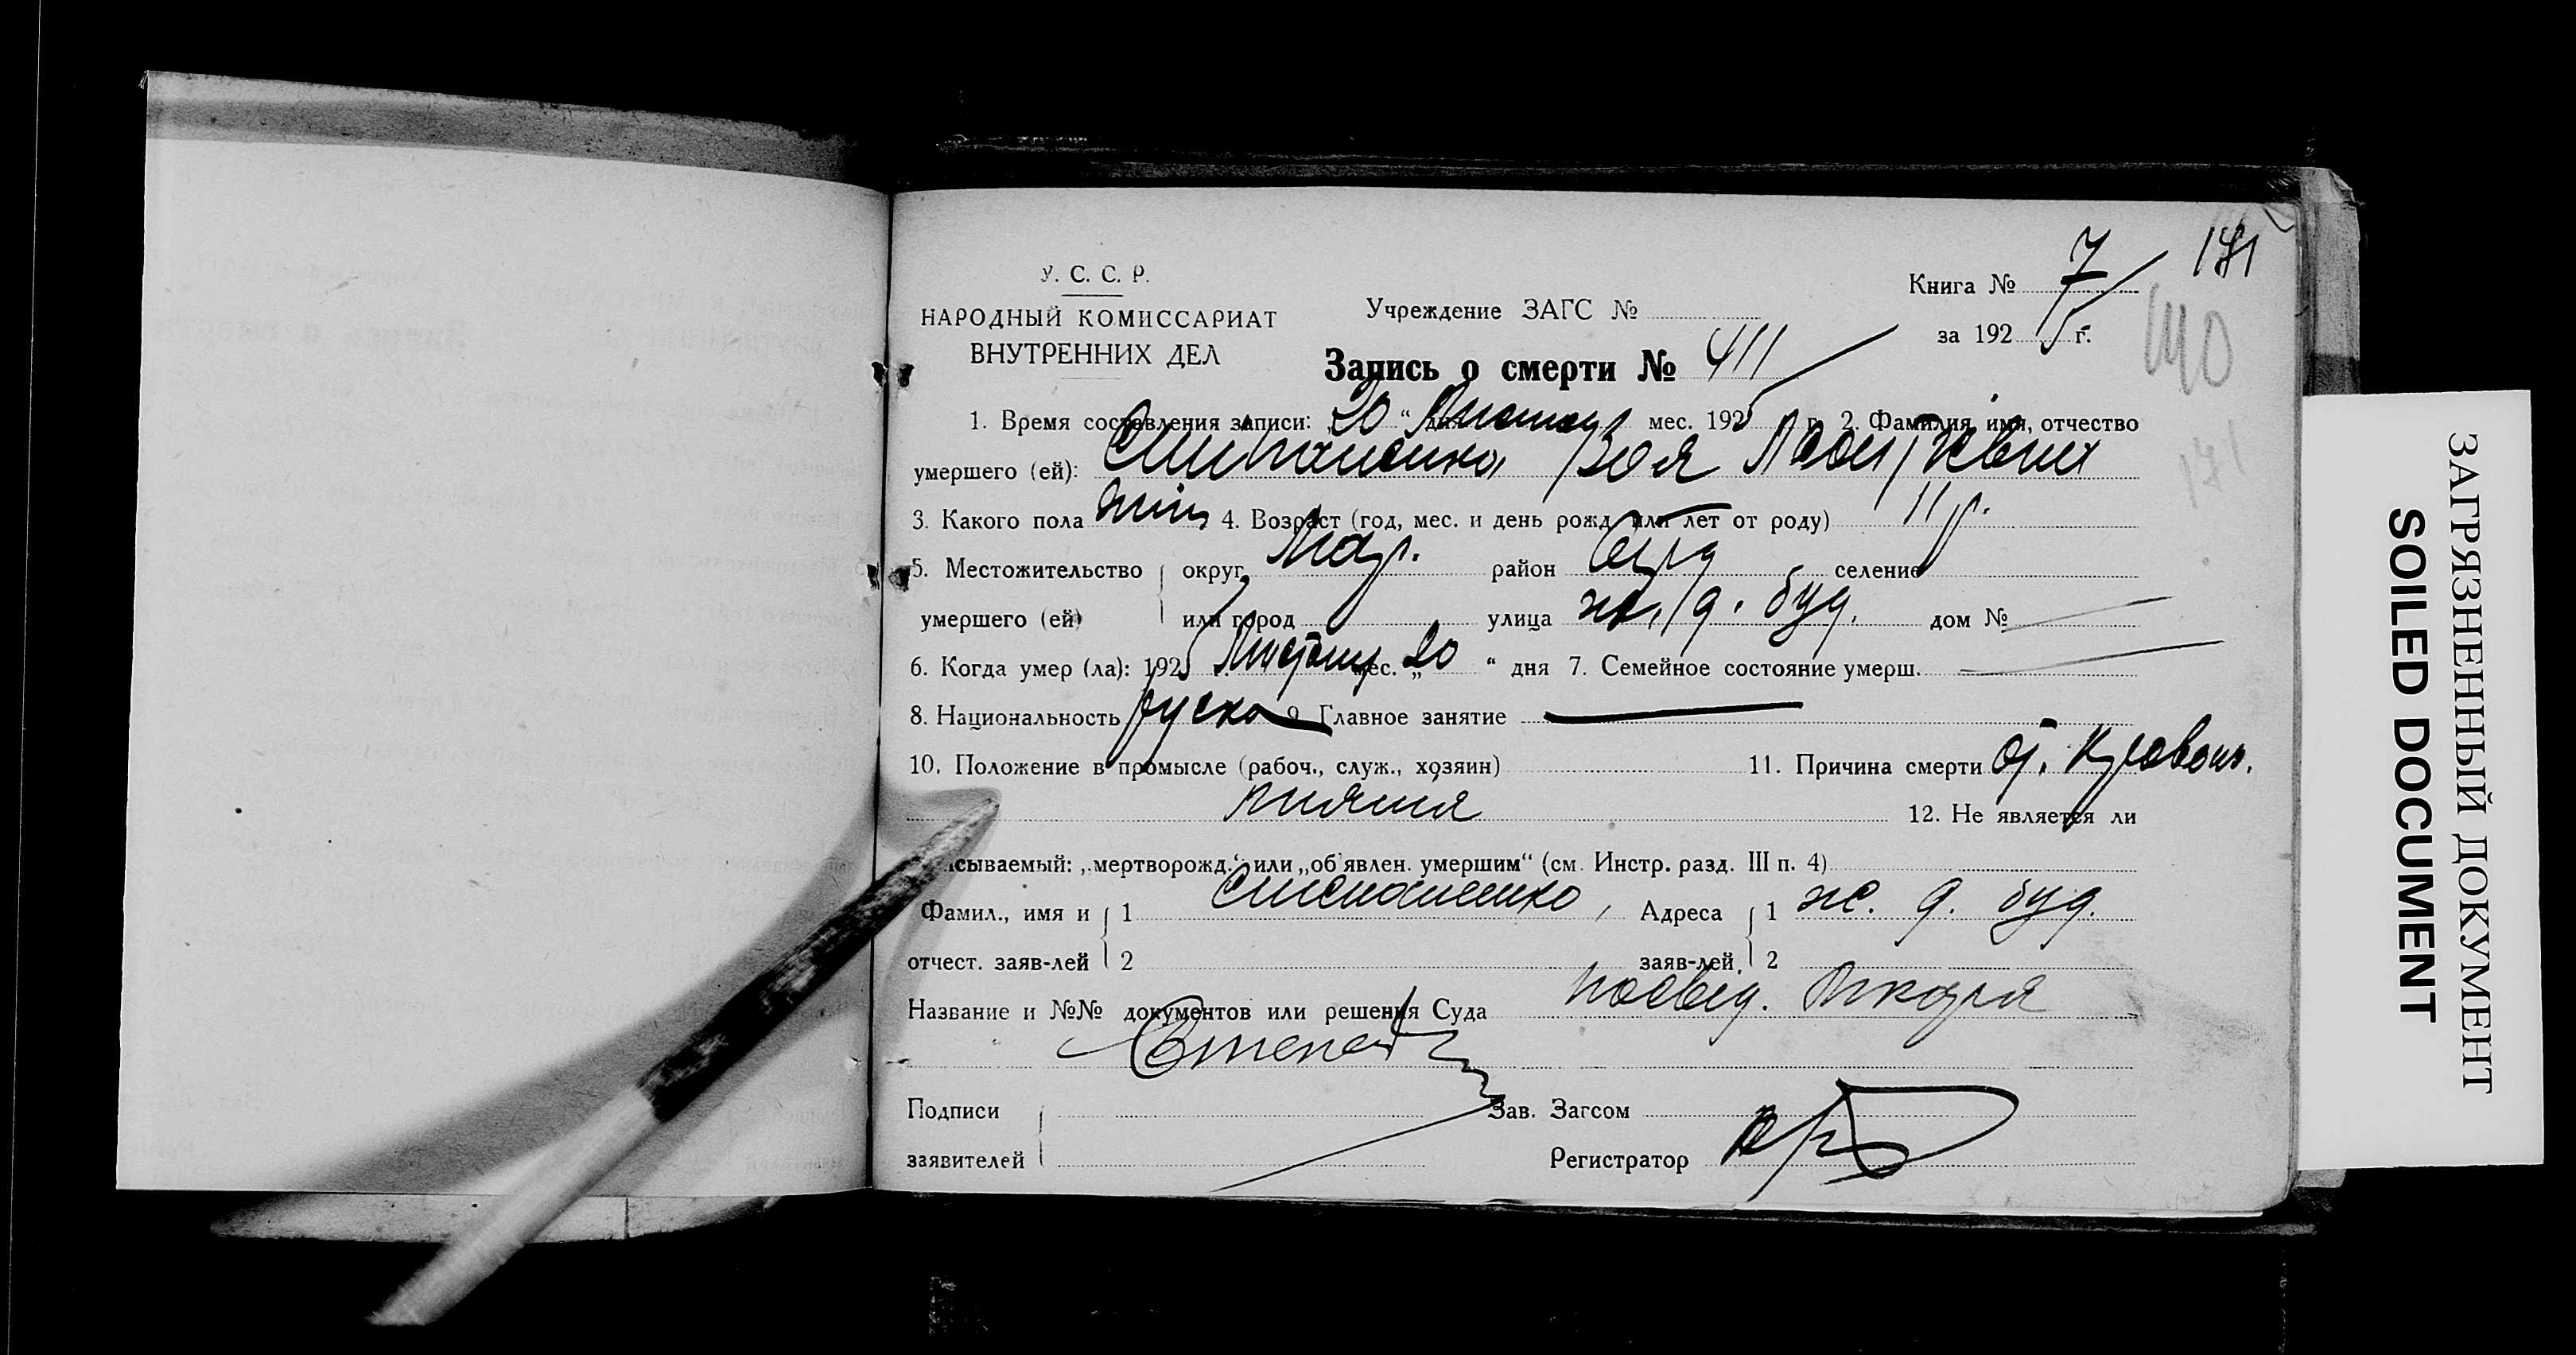 У. С. С. Р.
НАРОДНЫЙ КОМИССАРИАТ
ВНУТРЕННИХ ДЕЛ
Учреждение ЗАГС №
Книга № 7
за 1925 г.
140
171
Запись о смерти № 411
1. Время составления записи: „20“ дня мес. 1925 г. 2. Фамилия, имя, отчество
умершего (ей):
3. Какого пола 4. Возраст (год, мес. и день рожд. или лет от роду) 11 р.
5. Местожительство округ район селение
умершего (ей) или город улица ж. д. буд. дом №
6. Когда умер (ла): 1925 г. мес. „20“ дня 7. Семейное состояние умерш.
8. Национальность руска 9. Главное занятие
10. Положение в промысле (рабоч., служ., хозяин) 11. Причина смерти от. Кровоиз.
12. Не является ли
сываемый: „мертворожд.“ или „об'явлен. умершим“ (см. Инстр. разд. III п. 4)
Фамил., имя и 1 Степаненко, Адреса 1 ж. д. буд.
отчест. заяв-лей 2 заяв-лей 2
Название и №№ документов или решения Суда посвід. Лікаря
Подписи Зав. Загсом
заявителей Регистратор
ЗАГРЯЗНЕННЫЙ ДОКУМЕНТ
SOILED DOCUMENT